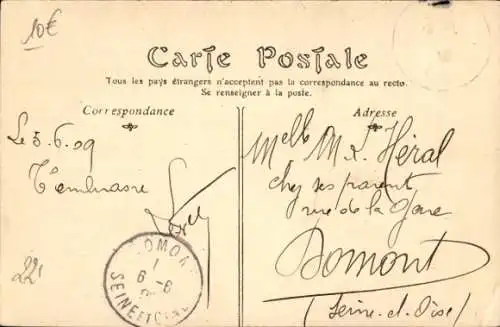 10€
Carte Postale
Tous les pays étrangers n'acceptent pas la correspondance au recto.
Se renseigner à la poste.
Correspondance
Adresse
Le 5.6.09
T'embrasse
22
DOMONT
1
6-6
SEINE ET OISE
Melle M L Héral
chez ses parent
rue de la Gare
Domont
(Seine-et-Oise)